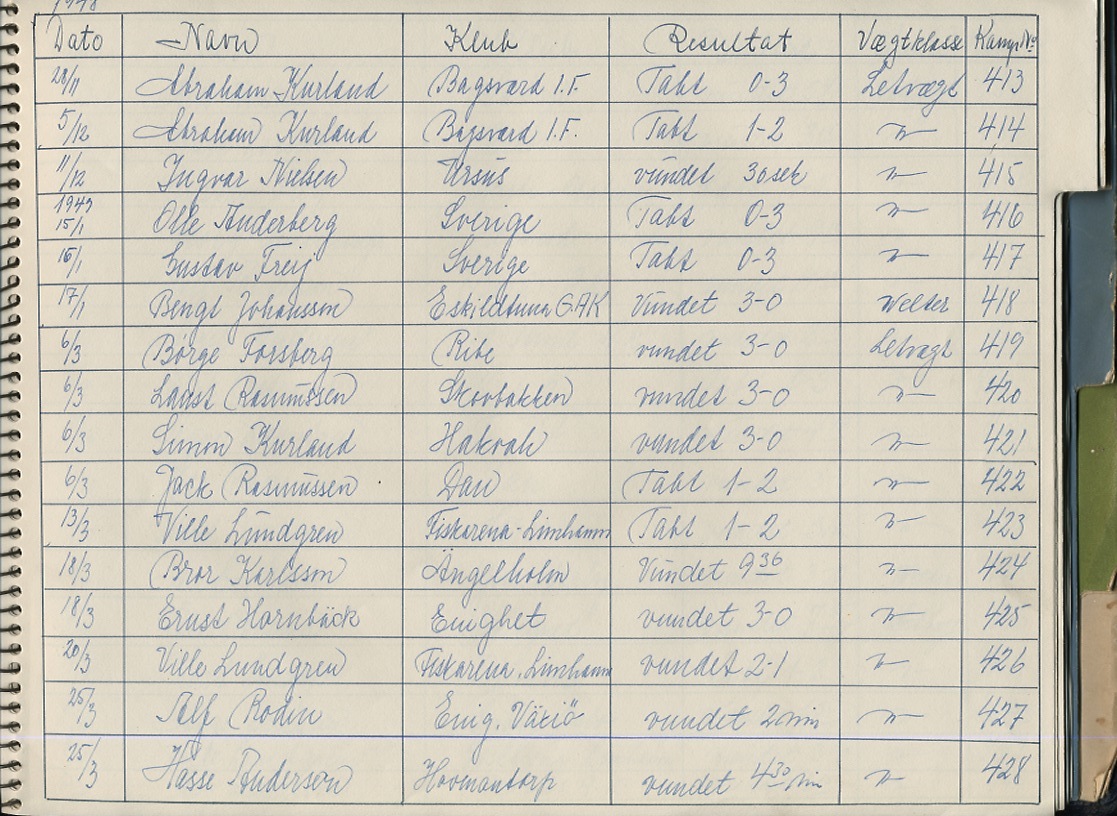 1948
Dato Navn Klub Resultat Vægtklasse Kamp Nº
28/11 Abraham Kurland Bagsværd I.F. Tabt 0-3 Letvægt 413
5/12 Abraham Kurland Bagsværd I.F. Tabt 1-2 -"- 414
11/12 Ingvar Nielsen Ursus vundet 30 sek -"- 415
1949
15/1 Olle Anderberg Sverige Tabt 0-3 -"- 416
16/1 Gustav Freij Sverige Tabt 0-3 -"- 417
17/1 Bengt Johansson Eskildtuna G.AK Vundet 3-0 Welter 418
6/3 Börge Forsberg Ribe vundet 3-0 Letvægt 419
6/3 Laust Rasmussen Skovbakken vundet 3-0 -"- 420
6/3 Simon Kurland Hakoah vundet 3-0 -"- 421
6/3 Jack Rasmussen Dan Tabt 1-2 -"- 422
13/3 Ville Lundgren Fiskarena-Limhamn Tabt 1-2 -"- 423
18/3 Bror Karlsson Ängelholm Vundet 9 36 -"- 424
18/3 Ernst Hornbäck Enighet vundet 3-0 -"- 425
20/3 Ville Lundgren Fiskarena, Limhamn vundet 2-1 -"- 426
25/3 Alf Rodin Enig. Växiö vundet 2 min -"- 427
25/3 Hasse Anderson Hovmantorp vundet 4 30 min -"- 428